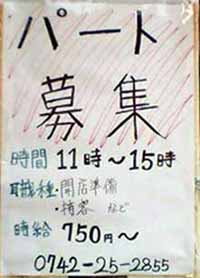 パート
募集
時間 11時～15時
職種・開店準備
・接客 など
時給 750円～
0742-25-2855